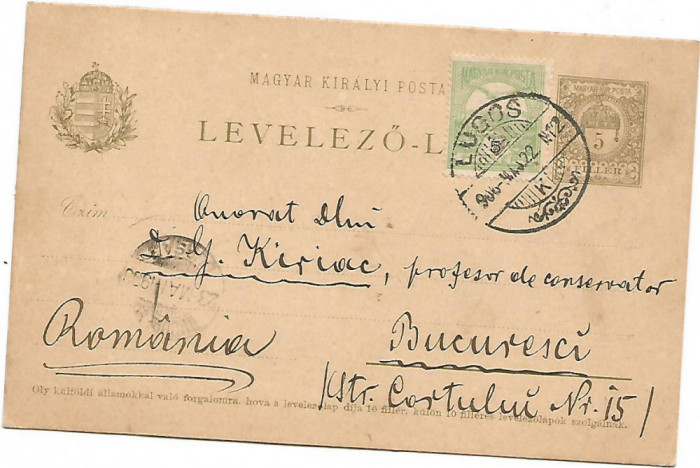 MAGYAR KIRÁLYI POSTA
LEVELEZŐ-L
MAGYAR KIR. POSTA
5
FILLÉR
LUGOS
906 MAJ. 22. N12
K
Czim:
Onorat Dlui
D. G. Kiriac, profesor de conservator
România
Bucuresci
/Str. Cortului Nr. 15/
Oly külföldi államokkal való forgalomra, hova a levelezőlap díja 10 fillér, külön 10 filléres levelezőlapok szolgálnak.